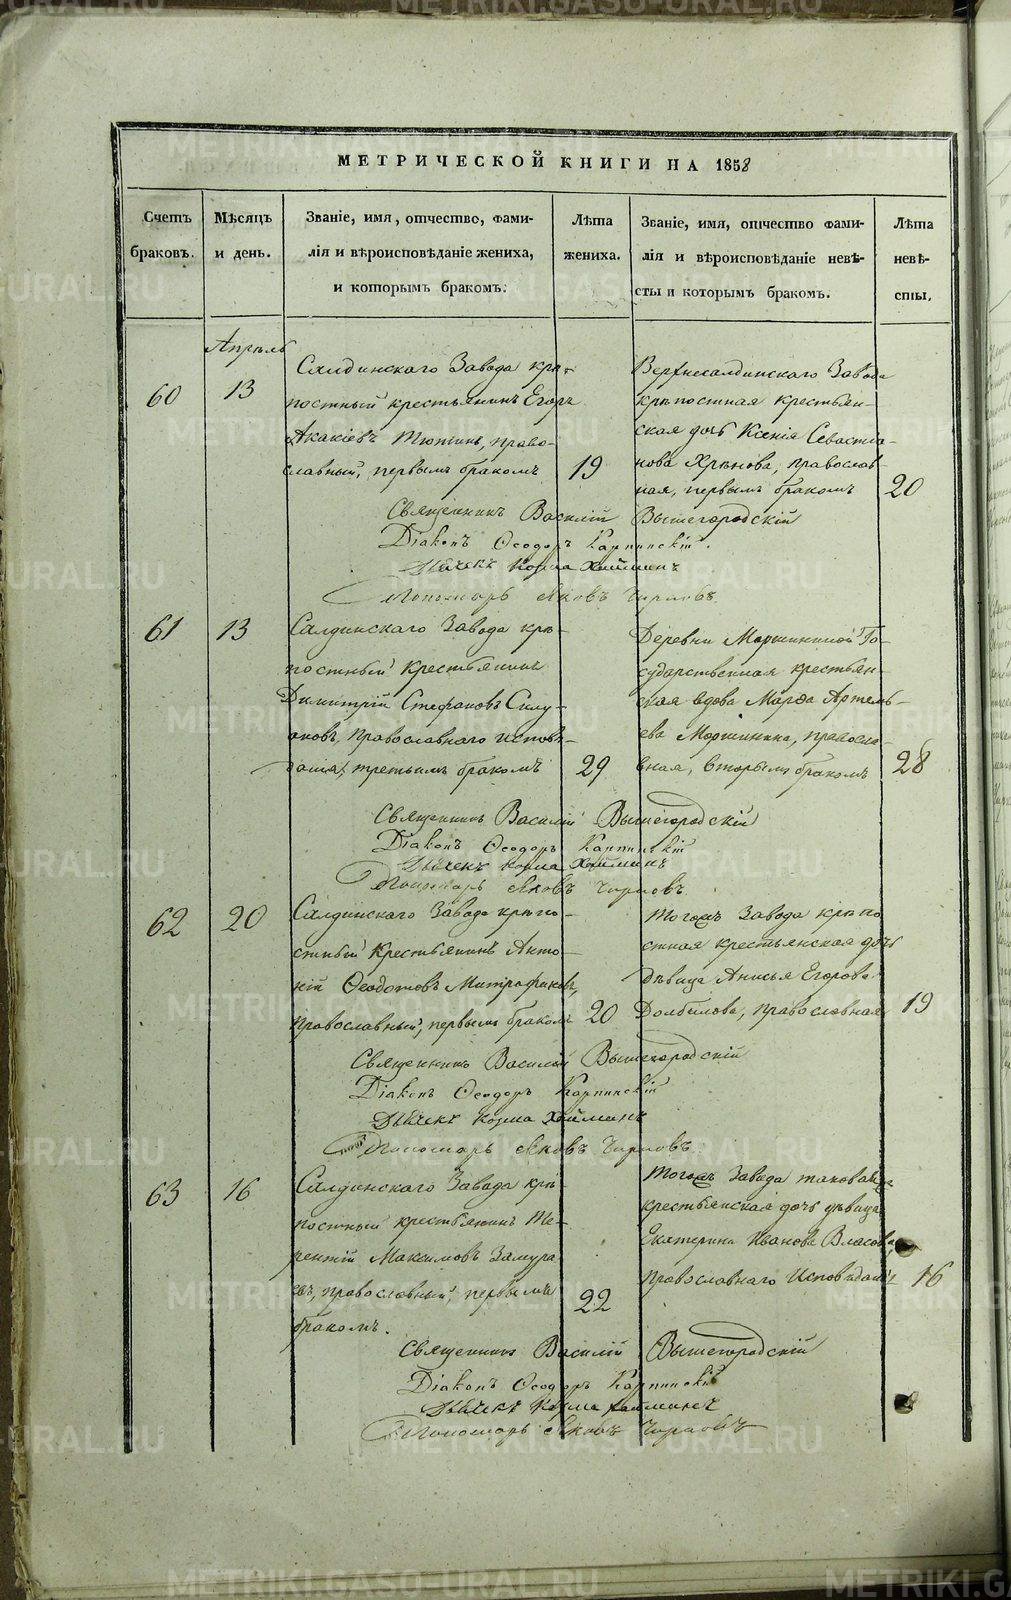 МЕТРИЧЕСКОЙ КНИГИ НА 1858
Счетъ браковъ.
Мѣсяцъ и день.
Званіе, имя, отчество, фами-
лія и вѣроисповѣданіе жениха,
и которымъ бракомъ.
Лѣта жениха.
Званіе, имя, отчество фами-
лія и вѣроисповѣданіе невѣ-
сты и которымъ бракомъ.
Лѣта невѣ-
сты.
Апрѣль
60
13
Салдинскаго Завода крѣ-
постный крестьянинъ Егоръ
Акакіевъ Тютинъ, право-
славный, первымъ бракомъ
19
Верхнесалдинскаго Завода
крѣпостная крестьян-
ская дочь Ксенія Севастіа-
нова Хрѣнова, православ-
ная, первымъ бракомъ
20
Священникъ Василій Вышегородскій
Діаконъ Ѳеодоръ Карпинскій.
Дьячекъ Козма
Пономарь Яковъ
61
13
Салдинскаго Завода крѣ-
постный крестьянинъ
Димитрій Стефановъ Силу-
ановъ, Православнаго исповѣ-
данія, третьимъ бракомъ
29
Деревни Моршининой Го-
сударственная крестьян-
ская вдова Марѳа Артемь-
ева Моршинина, правосла-
вная, вторымъ бракомъ
28
Священникъ Василій Вышегородскій
Діаконъ Ѳеодоръ Карпинскій
Дьячекъ Козма
Пономарь Яковъ
62
20
Салдинскаго Завода крѣпо-
стный Крестьянинъ Анто-
ній Ѳеодотовъ Митрофановъ,
православный, первымъ бракомъ
20
Тогожъ Завода крѣпо
стная крестьянская дочь
дѣвица Анисья Егорова
Долбилова, православная
19
Священникъ Василій Вышегородскій
Діаконъ Ѳеодоръ Карпинскій
Дьячекъ Козма
Пономарь Яковъ
63
16
Салдинскаго Завода крѣ-
постный крестьянинъ Те-
рентій Максимовъ Замура
евъ, православный, первымъ
бракомъ.
22
Тогожъ Завода таковаяже
крестьянская дочь дѣвица
Екатерина Иванова Власова,
православнаго Исповѣданія
16
Священникъ Василій Вышегородскій
Діаконъ Ѳеодоръ Карпинскій
Дьячекъ Козма
Пономарь Яковъ
METRIKI.GASO-URAL.RU